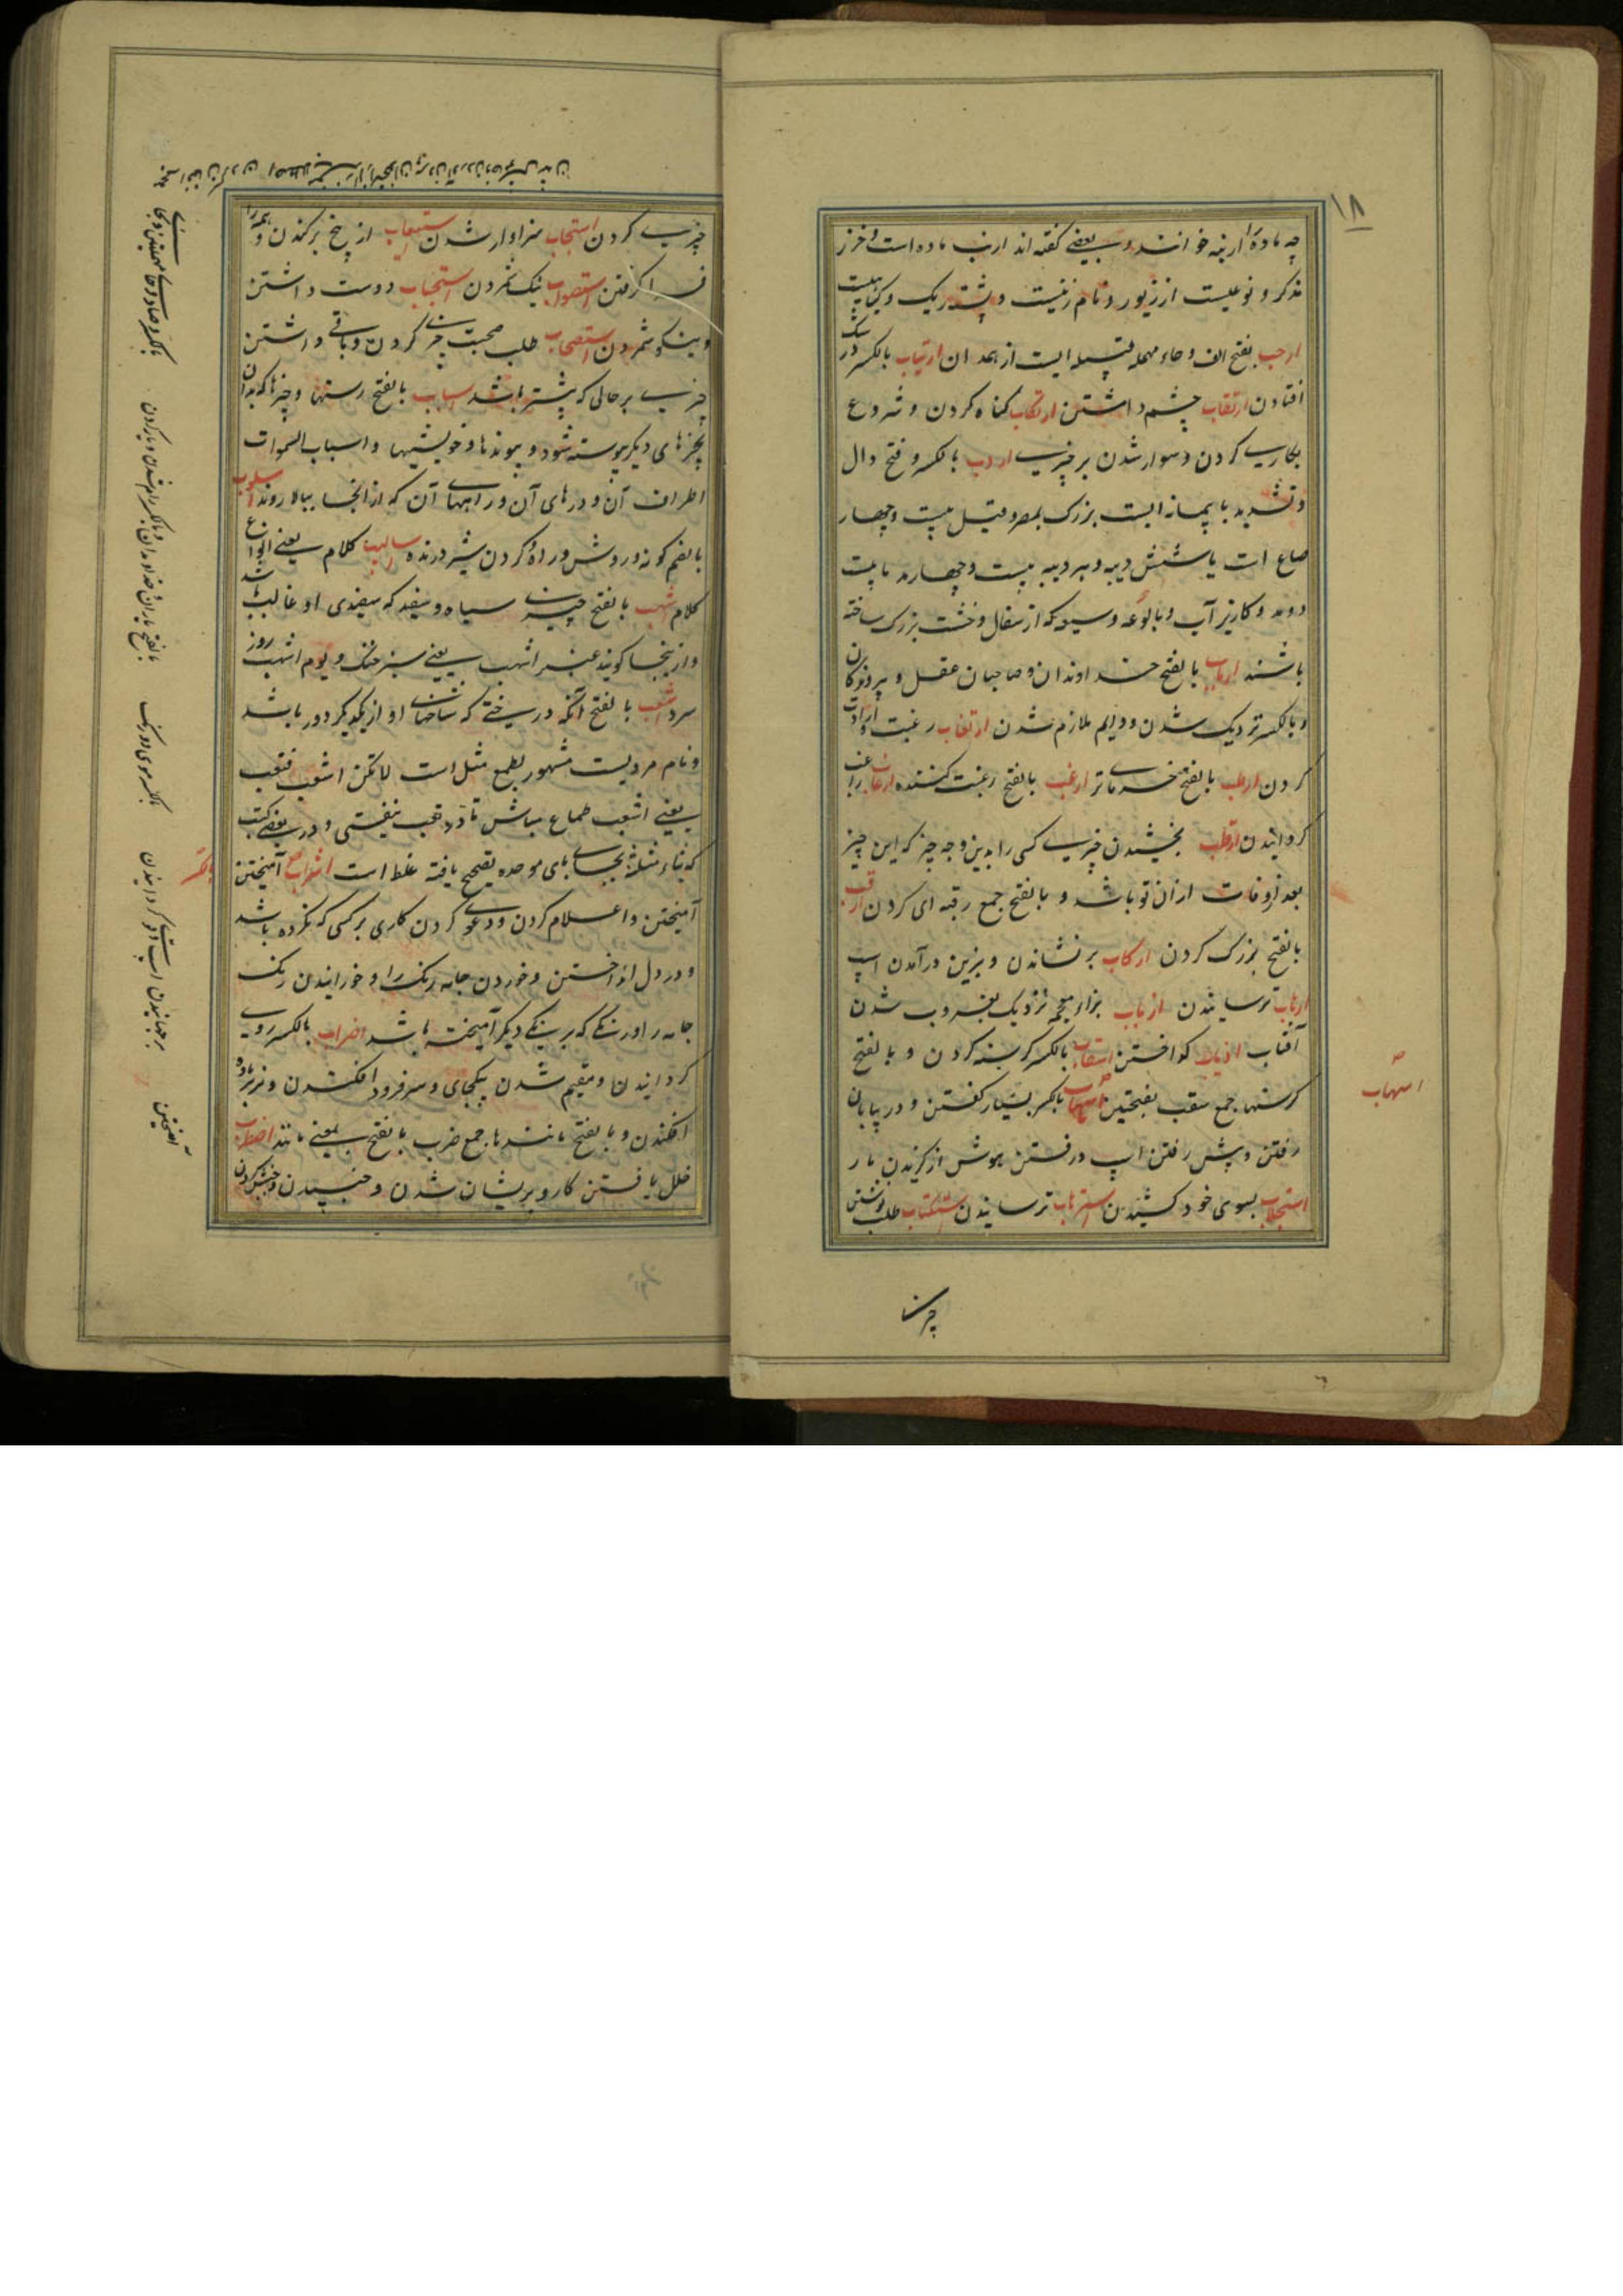 ۱۸
چه ماده را ارنبه خوانند و بعضی گفته اند ارنب ماده است و خرز
مذکر و نوعیست از زیور و نام زنیست و پشته ریک و گیاهیست
ارحب بفتح الف و حاء مهمله قبیله ایست از همدان ارتیاب بالکسر در شک
افتادن ارتقاب چشم داشتن ارتکاب کناه کردن و شروع
بکاری کردن و سوار شدن بر چیزی اردب بالکسر و فتح دال
و تشدید با پیمانه ایست بزرک بمصر و قیل بیست و چهار
صاع است یا شش ویبه و هر ویبه بیست و چهار مد یا بیست
دو مد و کاریز آب و بالوعه و سبویکه از سفال و خشت بزرک ساخته
باشند ارباب بالفتح خداوندان و صاحبان عقل و پرورندکان
و بالکسر نزدیک شدن و دایم ملازم شدن ارتغاب رغبت و ارادت
کردن ارطب بالفتح خرما تر ارغب بالفتح رغبت کننده ارغاب راغب
کردانیدن ارقاب بخشیدن چیزی کسی را بدین وجه که این چیز
بعد از وفات از ان تو باشد و بالفتح جمع رقبه ای کردن ارقب
بالفتح بزرک کردن ارکاب برنشاندن و بزین درآمدن اسپ
ارهاب ترسانیدن ازباب بزاء معجمه نزدیک بغروب شدن
آفتاب اذیاب کداختن اسغاب بالکسر کرسنه کردن و بالفتح
کرسنها جمع سغب بفتحتین اسهاب بالکسر بسیار گفتن و در بیابان
رفتن و پیش رفتن اسپ و رفتن هوش از گزیدن مار
استجلاب بسوی خود کشیدن استرهاب ترسانیدن استکتاب طلب نوشتن
اسهاب
چیزی
چیزی کردن استیجاب سزاوار شدن استیعاب از بیخ برکندن و همه را
فراگرفتن استصواب نیک شمردن استحباب دوست داشتن
و نیکو شمردن استصحاب طلب صحبت چیزی کردن و باقی داشتن
چیزی بر حالی که پیشتر باشد اسباب بالفتح رسنها و چیزها که بدان
بچیزهای دیگر پیوسته شود و پیوندها و خویشیها و اسباب السموات
اطراف آن و درهای آن و راههای آن که از انجا ببالا روند اسلوب
بالضم گونه و روش و راه و گردن شیر درنده اسالیب کلام یعنی انواع
کلام اشهب بالفتح چیزی سیاه و سفید که سفیدی او غالب باشد
و از اینجا گویند عنبر اشهب یعنی سبز خنک و یوم اشهب روز
سرد اشعب بالفتح آنکه درختی که شاخهای او از یکدیگر دور باشد
و نام مردیست مشهور بطمع مثل است لا تکن اشعب فتتعب
یعنی اشعب طماع مباش تا در تعب نیفتی و در بعضی کتب
که بثاء مثلثه بجای بای موحده تصحیح یافته غلط است اشراب آمیختن
آمیختن و اعلام کردن و دعوی کردن کاری بر کسی که نکرده باشد
و در دل انداختن و خوردن جامه رنک را و خورانیدن رنک
جامه را و رنگی که برنگی دیگر آمیخته باشد اضراب بالکسر روی
گردانیدن و مقیم شدن بیکجای و سر فرود افکندن و نر بر ماده
افکندن و بالفتح مانندها جمع ضرب بالفتح بمعنی مانند اضطراب
خلل یافتن کار و پریشان شدن و جنبیدن و جنبش کردن
بالکسر
آمیختن